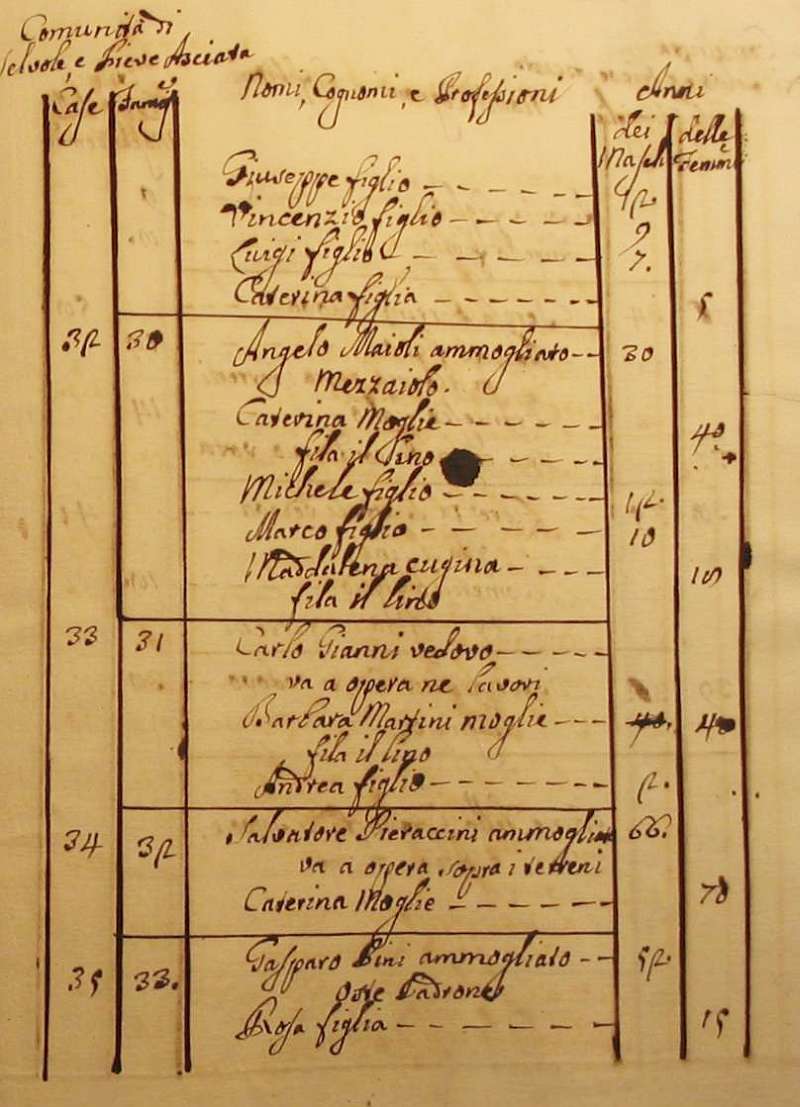 Comunità di
Selvole, e Pieve Asciata
Case Famigᵉ Nomi, Cognomi, e Professioni Anni
dei Masch delle Femmᵉ
Giuseppe figlio 12.
Vincenzio figlio 9
Luigi figlio 7.
Caterina figlia 5
32 30 Angelo Maioli ammogliato 30
Mezzaiolo.
Caterina Moglie 40
fila il lino
Michele figlio 12.
Marco figlio 10
Maddalena cugina
fila il lino
33 31 Carlo Gianni vedovo
va a opera ne lavori
Barbara Martini moglie 40. 40
fila il lino
Andrea figlio 2.
34 32 Salvatore Pieraccini ammogliato 66.
va a opera sopra i terreni
Caterina Moglie 70
35 33. Gasparo Pini ammogliato 52.
Oste Padrone
Rosa figlia 15